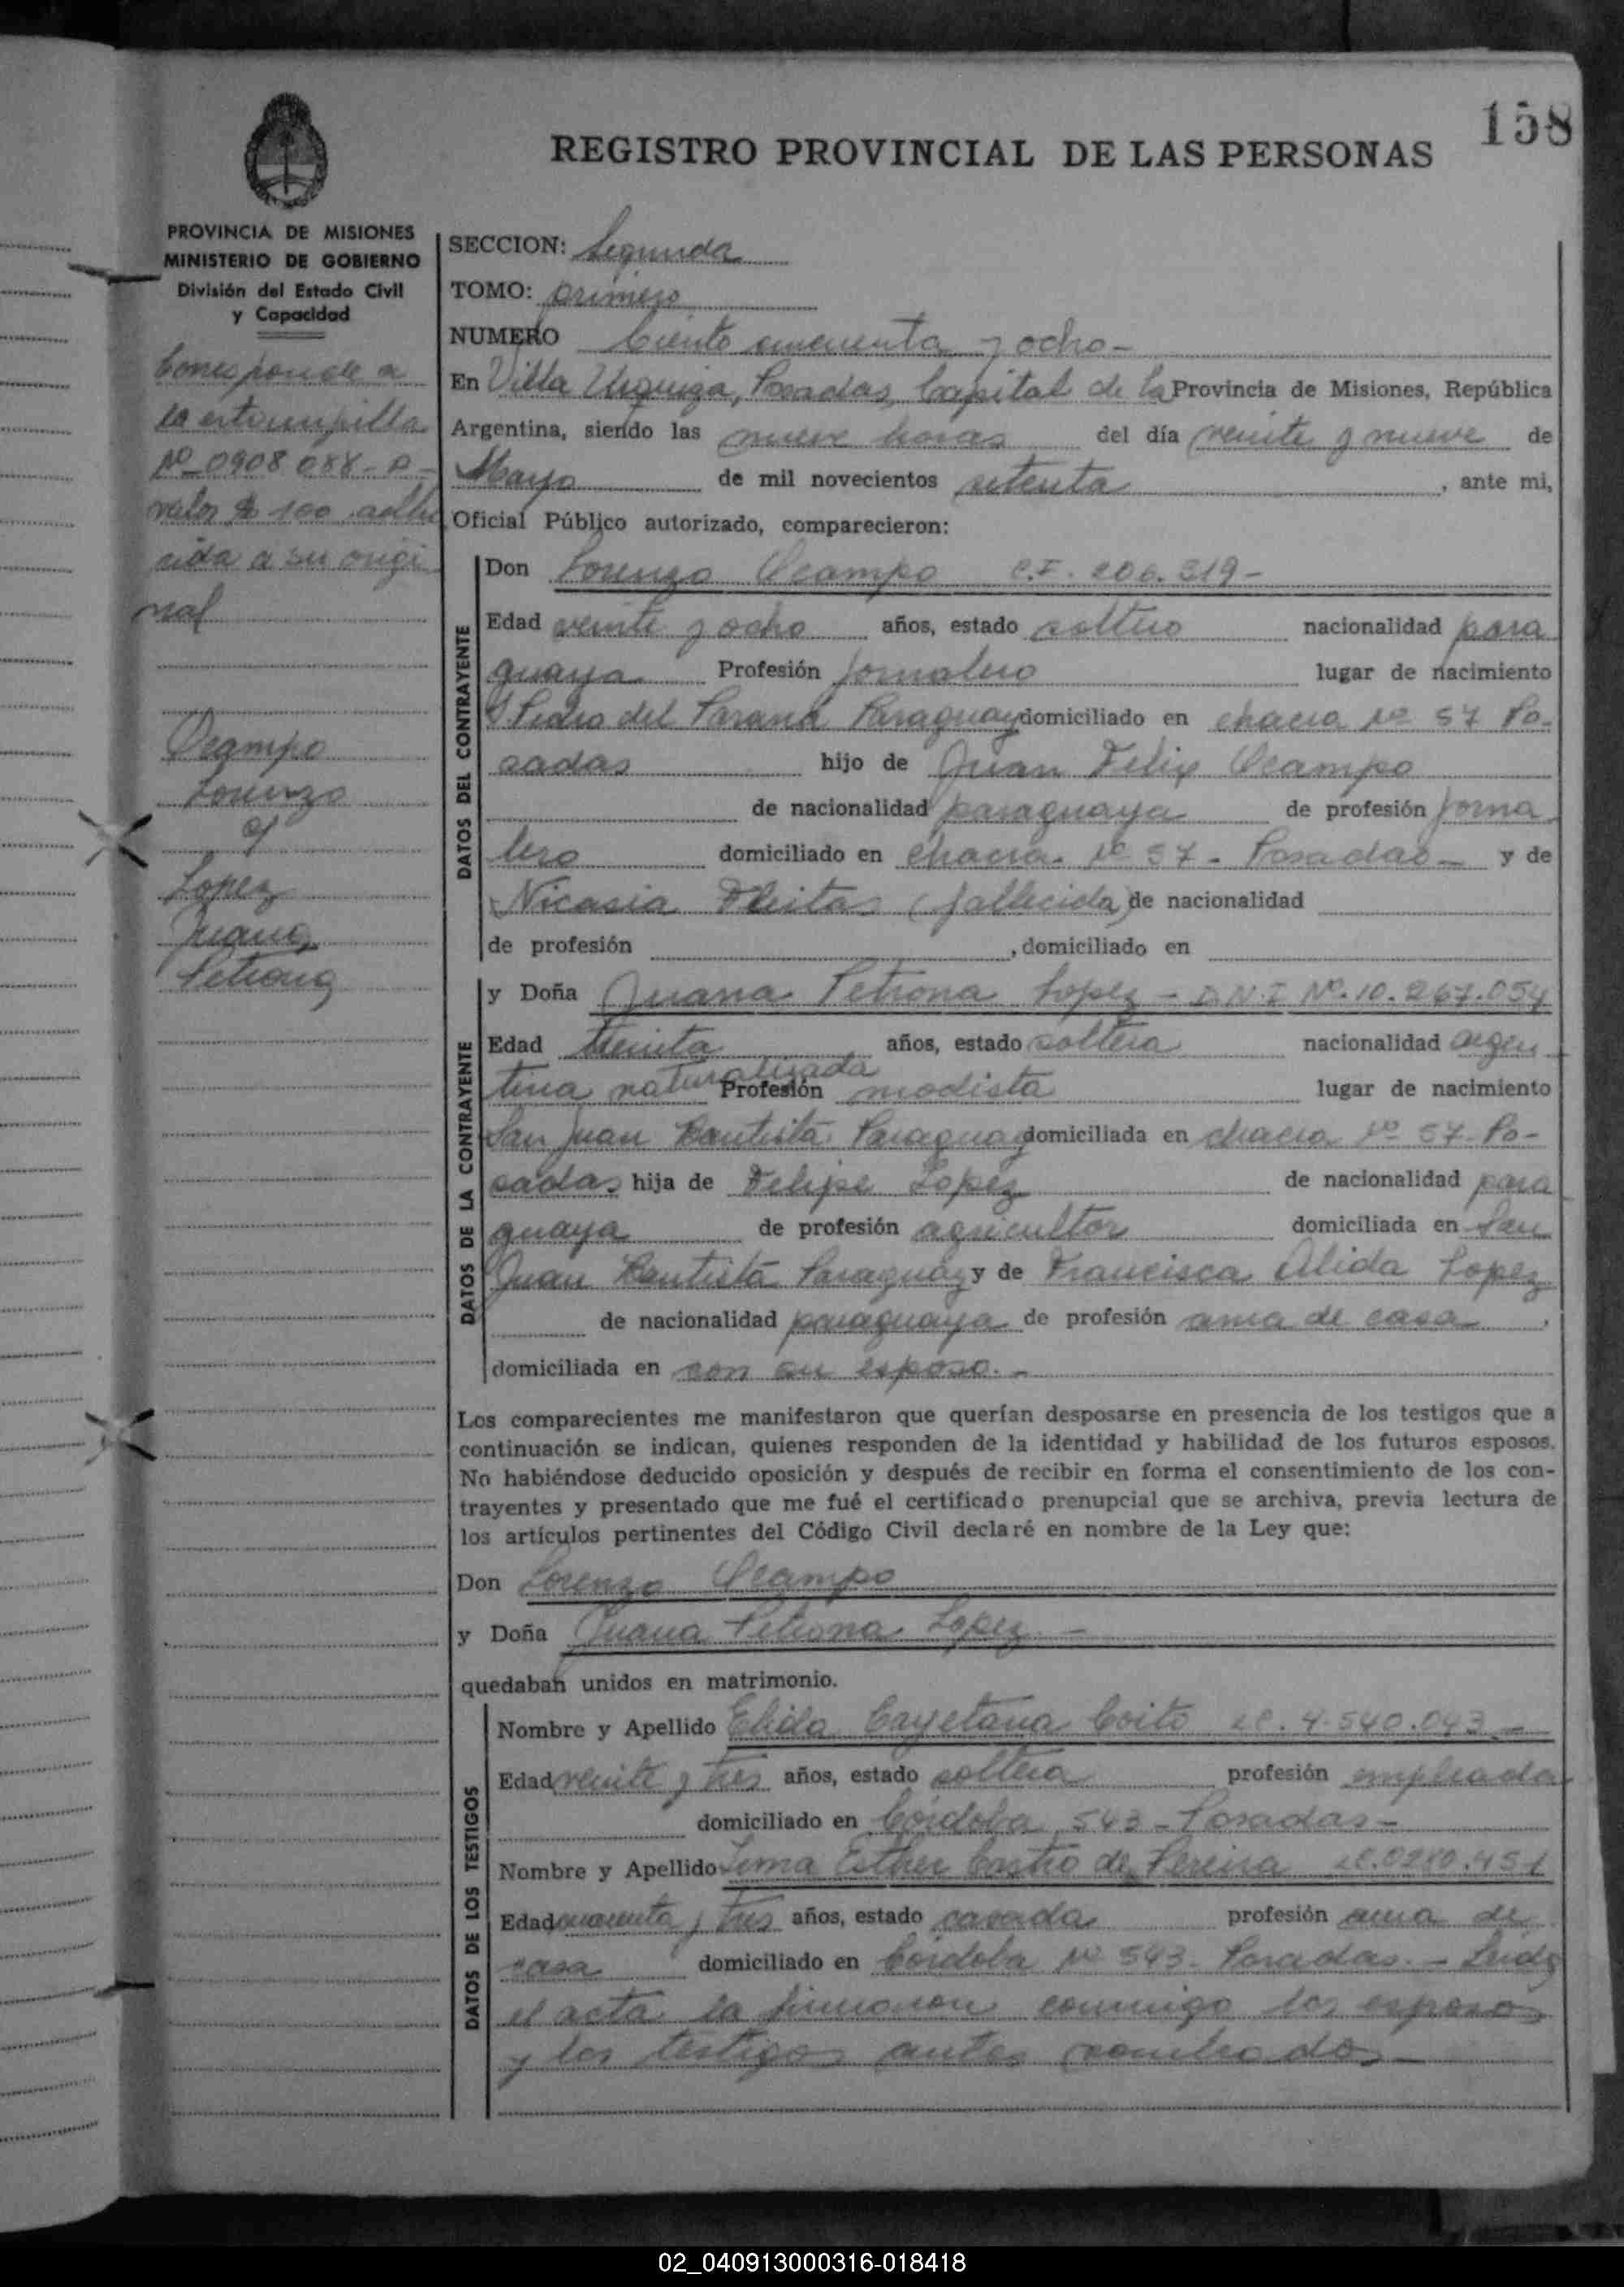 158
REGISTRO PROVINCIAL DE LAS PERSONAS
PROVINCIA DE MISIONES
MINISTERIO DE GOBIERNO
División del Estado Civil
y Capacidad
Corresponde a
la estampilla
Nº 0908088-A-
valor $ 100 adhe
rida a su origi
nal
Ocampo
Lorenzo
c/
Lopez
Juana
Petrona
SECCION: Segunda
TOMO: primero
NUMERO Ciento cincuenta y ocho-
En Villa Urquiza, Posadas, Capital de la Provincia de Misiones, República
Argentina, siendo las nueve horas del día veinte y nueve de
Mayo de mil novecientos setenta, ante mi,
Oficial Público autorizado, comparecieron:
DATOS DEL CONTRAYENTE
Don Lorenzo Ocampo C.I. 206.319-
Edad veinte y ocho años, estado soltero nacionalidad para
guaya Profesión Jornalero lugar de nacimiento
S. Pedro del Paraná Paraguay domiciliado en chacra Nº 57 Po-
sadas hijo de Juan Felix Ocampo
de nacionalidad paraguaya de profesión Jorna
lero domiciliado en chacra Nº 57- Posadas- y de
Nicasia Fleitas (fallecida) de nacionalidad
de profesión , domiciliado en
DATOS DE LA CONTRAYENTE
y Doña Juana Petrona Lopez - D.N.I Nº.10.267.054
Edad treinta años, estado soltera nacionalidad argen
tina naturalizada Profesión modista lugar de nacimiento
San Juan Bautista Paraguay domiciliada en chacra Nº 57- Po-
sadas hija de Felipe Lopez de nacionalidad para
guaya de profesión agricultor domiciliada en San
Juan Bautista Paraguay y de Francisca Alida Lopez
de nacionalidad paraguaya de profesión ama de casa,
domiciliada en con su esposo.-
Los comparecientes me manifestaron que querían desposarse en presencia de los testigos que a
continuación se indican, quienes responden de la identidad y habilidad de los futuros esposos.
No habiéndose deducido oposición y después de recibir en forma el consentimiento de los con-
trayentes y presentado que me fué el certificado prenupcial que se archiva, previa lectura de
los artículos pertinentes del Código Civil declaré en nombre de la Ley que:
Don Lorenzo Ocampo
y Doña Juana Petrona Lopez-
quedaban unidos en matrimonio.
DATOS DE LOS TESTIGOS
Nombre y Apellido Elida Cayetana Coito LC. 4.540.043-
Edad veinte y tres años, estado soltera profesión empleada
domiciliado en Córdoba 543 - Posadas-
Nombre y Apellido Esther Castro de Pereira
Edad cuarenta y tres años, estado casada profesión ama de
casa domiciliado en Córdoba Nº 543- Posadas.- Leida
el acta la firmaron conmigo los esposos
y los testigos antes nombrados-
02_040913000316-018418